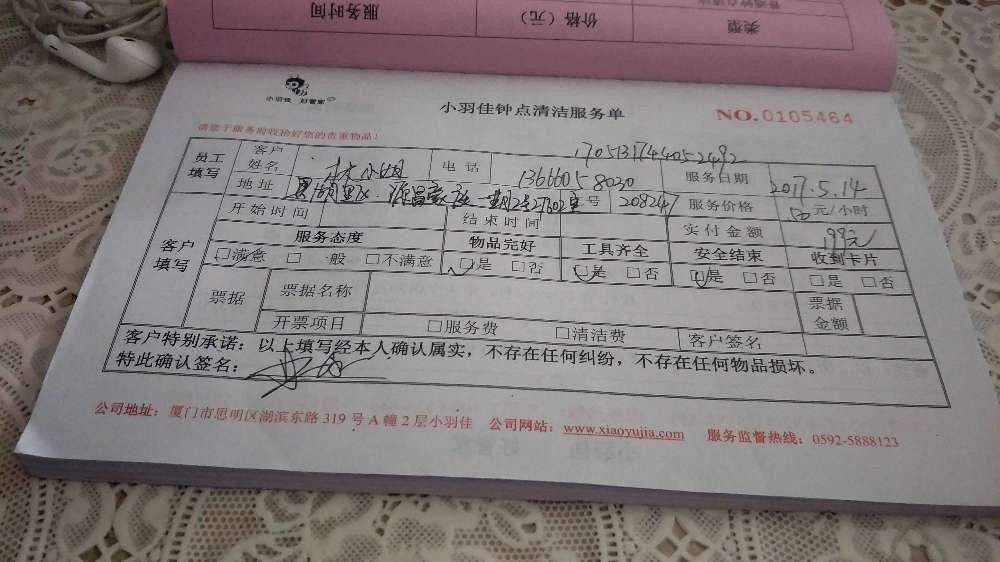 服务时间
价格(元)
类型
小羽佳 好管家
小羽佳钟点清洁服务单
NO.0105464
请您于服务前收拾好您的贵重物品!
17051317444052492
员工填写 客户姓名 林小姐 电话 13666058030 服务日期 2017.5.14
地址 号 208247 服务价格 50元/小时
客户填写 开始时间 结束时间 实付金额 199元
服务态度 物品完好 工具齐全 安全结束 收到卡片
□满意 □一般 □不满意 □是 □否 □是 □否 □是 □否 □是 □否
票据 票据名称 票据金额
开票项目 □服务费 □清洁费 客户签名
客户特别承诺:以上填写经本人确认属实,不存在任何纠纷,不存在任何物品损坏。
特此确认签名:
公司地址:厦门市思明区湖滨东路 319 号 A 幢 2 层小羽佳 公司网站:www.xiaoyujia.com 服务监督热线:0592-5888123